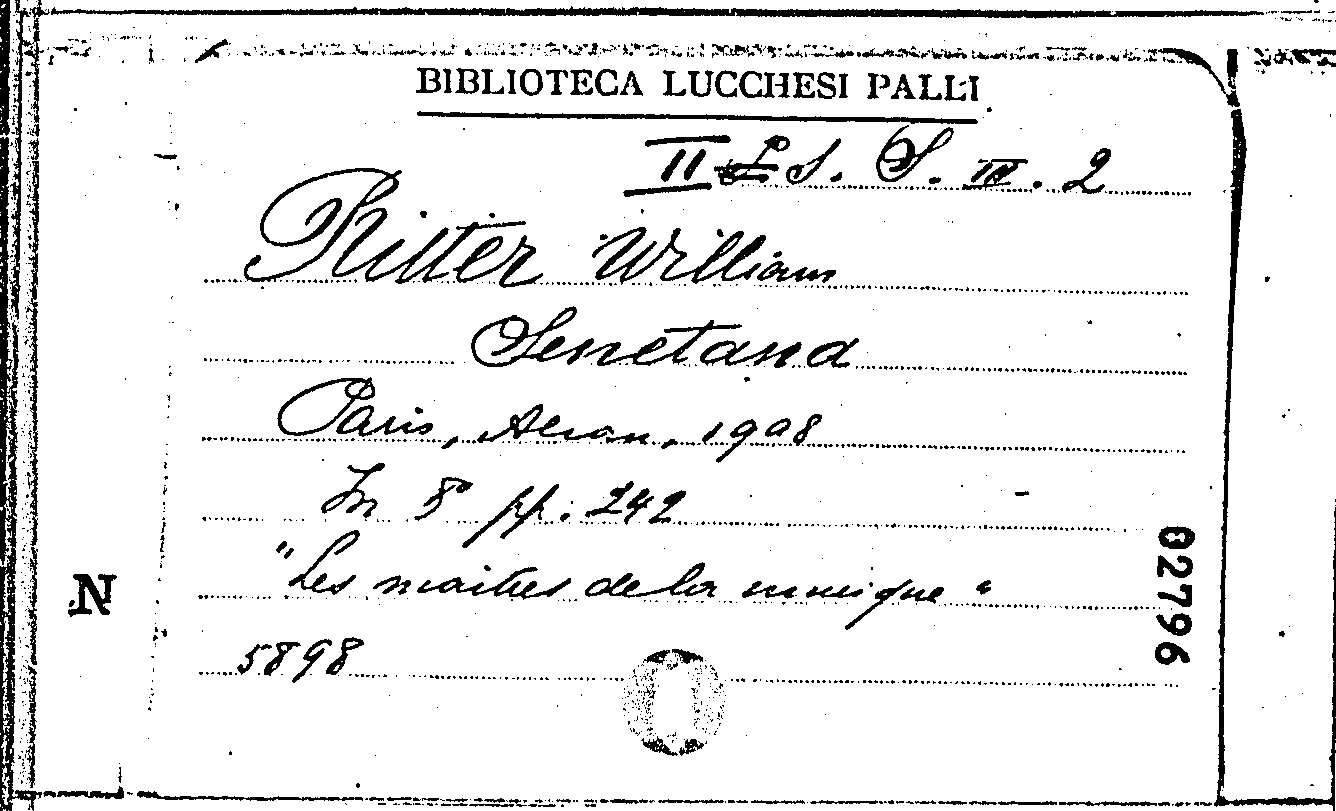 BIBLIOTECA LUCCHESI PALLI
II L S. S. III. 2
Ritter William
Smetana
Paris, Alcan, 1908
In 8° pp. 242
"Les maitres de la musique"
N
02796
5898